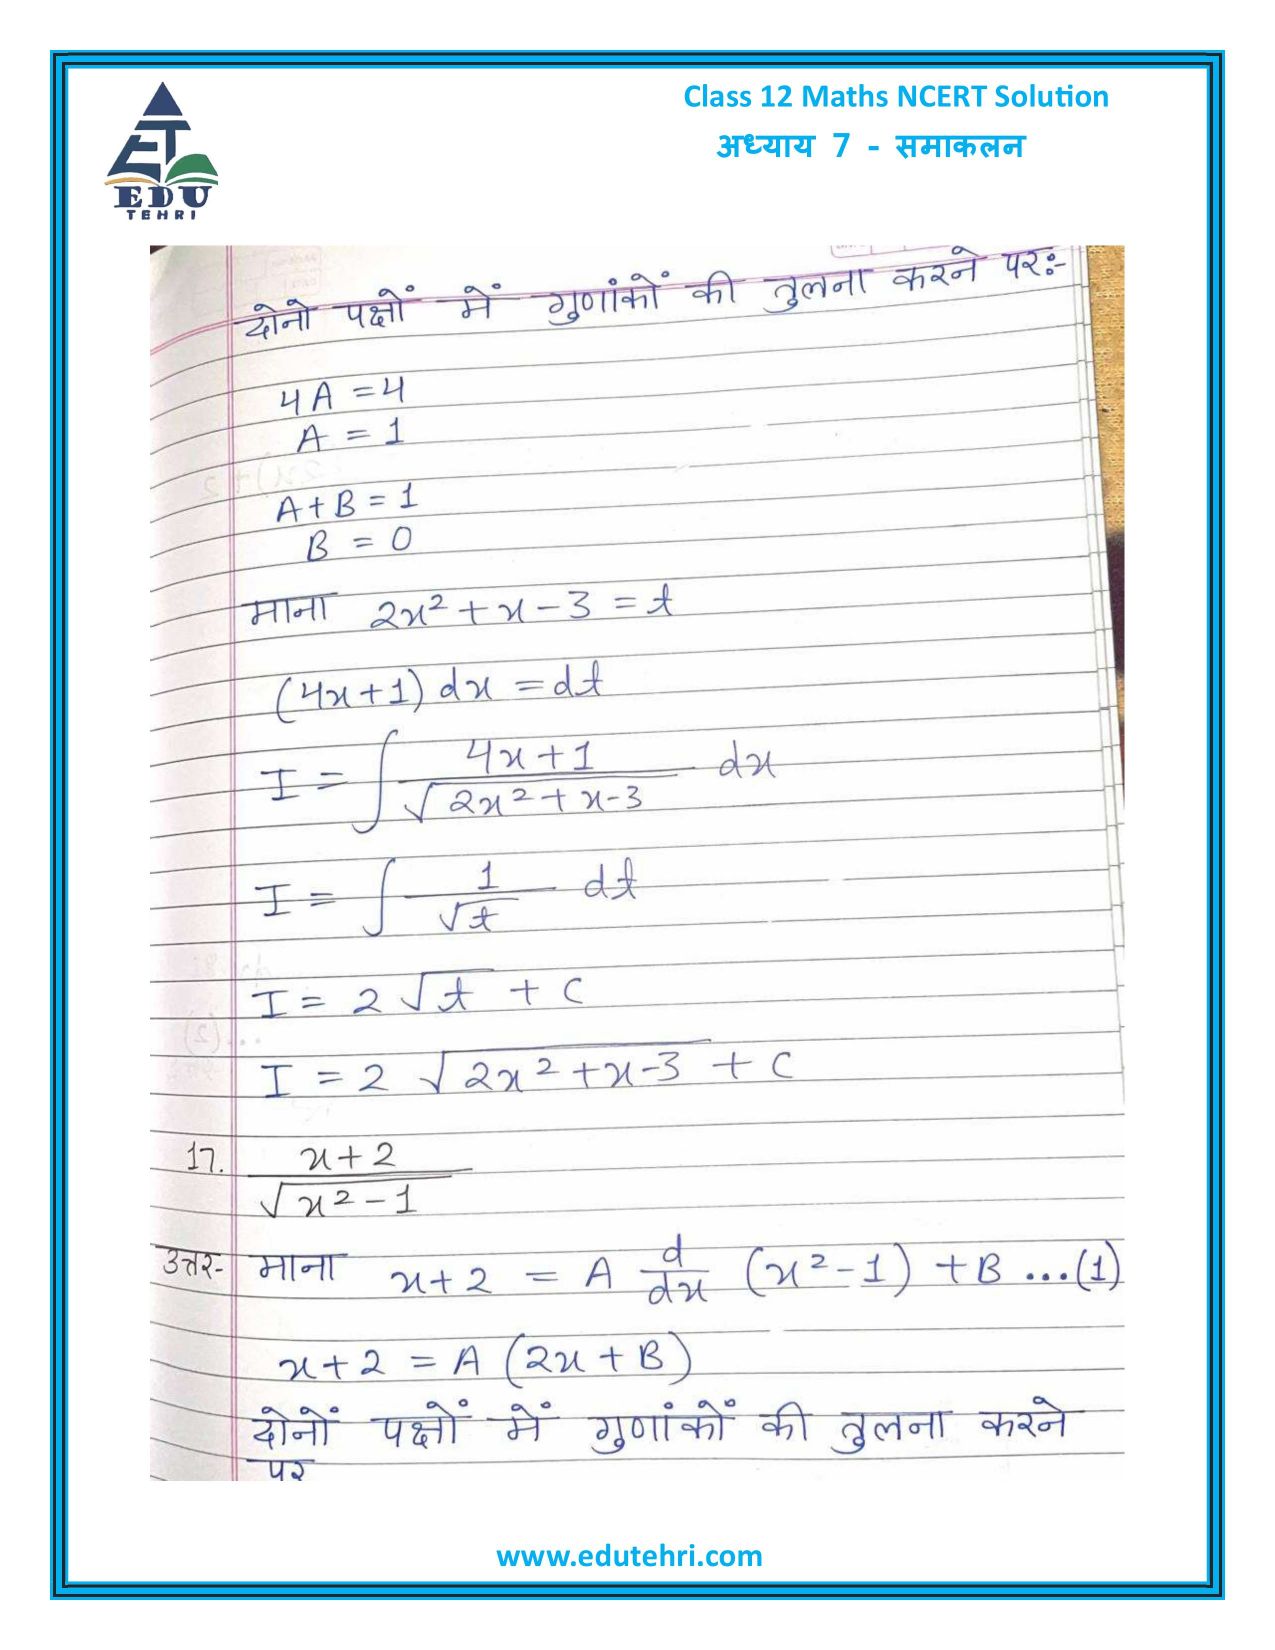 Class 12 Maths NCERT Solution
अध्याय 7 - समाकलन
EDU
TEHRI
दोनो पक्षों में गुणांकों की तुलना करने पर:-
4A = 4
A = 1
A + B = 1
B = 0
माना 2x² + x - 3 = t
(4x + 1) dx = dt
I = ∫ (4x + 1)/√(2x² + x - 3) dx
I = ∫ 1/√t dt
I = 2 √t + C
I = 2 √(2x² + x - 3) + C
17. (x + 2)/√(x² - 1)
उत्तर- माना x + 2 = A d/dx (x² - 1) + B ...(1)
x + 2 = A (2x + B)
दोनों पक्षों में गुणांकों की तुलना करने
पर
www.edutehri.com